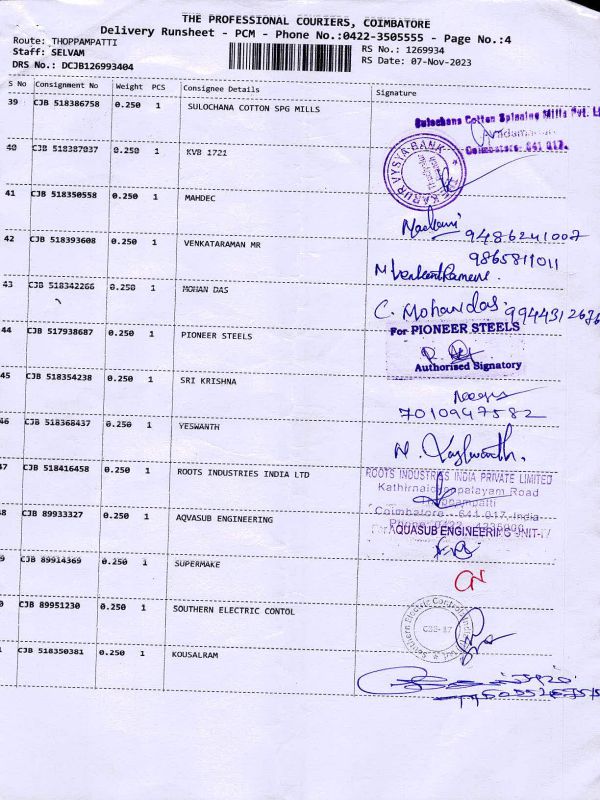 THE PROFESSIONAL COURIERS, COIMBATORE
Delivery Runsheet - PCM - Phone No.:0422-3505555 - Page No.:4
Route: THOPPAMPATTI
Staff: SELVAM
DRS No.: DCJB126993404
RS No.: 1269934
RS Date: 07-Nov-2023
S No Consignment No Weight PCS Consignee Details Signature
39 CJB 518386758 0.250 1 SULOCHANA COTTON SPG MILLS
Sulochana Cotton Spinning Mills Pvt. L
Coimbatore- 641 017.
40 CJB 518387037 0.250 1 KVB 1721
KARUR VYSYA BANK
41 CJB 518350558 0.250 1 MAHDEC
9486241007
42 CJB 518393608 0.250 1 VENKATARAMAN MR
9865811011
43 CJB 518342266 0.250 1 MOHAN DAS
C. Mohandas. 9944312676
44 CJB 517938687 0.250 1 PIONEER STEELS
For PIONEER STEELS
Authorised Signatory
45 CJB 518354238 0.250 1 SRI KRISHNA
7010947582
46 CJB 518368437 0.250 1 YESWANTH
47 CJB 518416458 0.250 1 ROOTS INDUSTRIES INDIA LTD
ROOTS INDUSTRIES INDIA PRIVATE LIMITED
Kathirnaickenpalayam Road
Thoppampatti
Coimbatore - 641 017, India
8 CJB 89933327 0.250 1 AQVASUB ENGINEERING
For AQUASUB ENGINEERING UNIT-IV
9 CJB 89914369 0.250 1 SUPERMAKE
0 CJB 89951230 0.250 1 SOUTHERN ELECTRIC CONTOL
CBE-17
1 CJB 518350381 0.250 1 KOUSALRAM